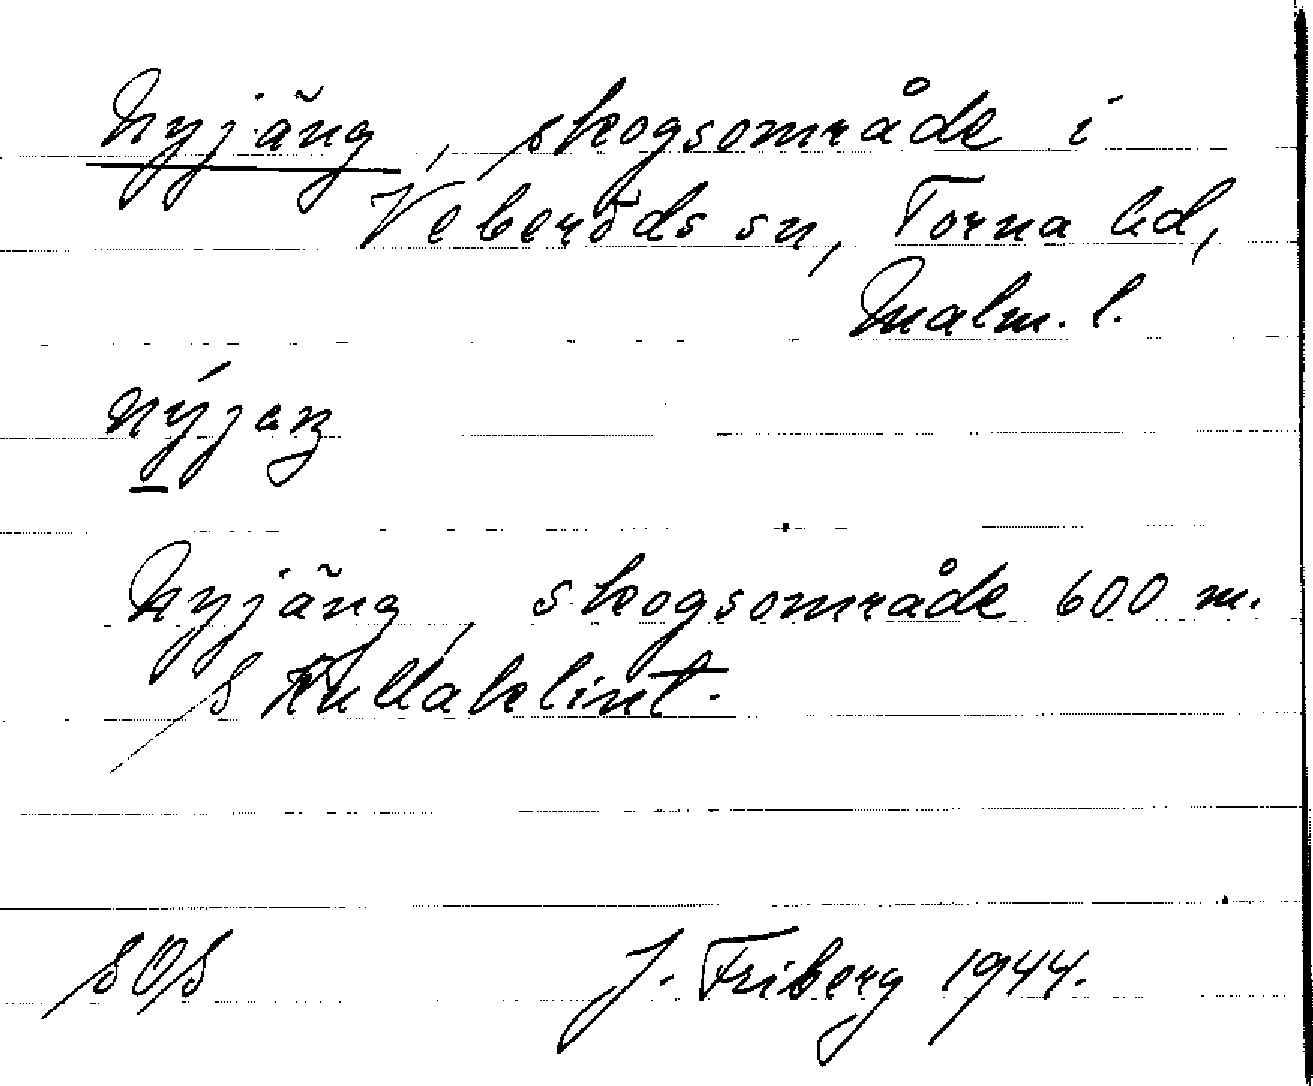 Nyjäng, skogsområde i
Veberöds sn, Torna hd,
Malm. l.
Nyjäng, skogsområde 600 m.
S Kullaklint.
SOS J. Friberg 1944.